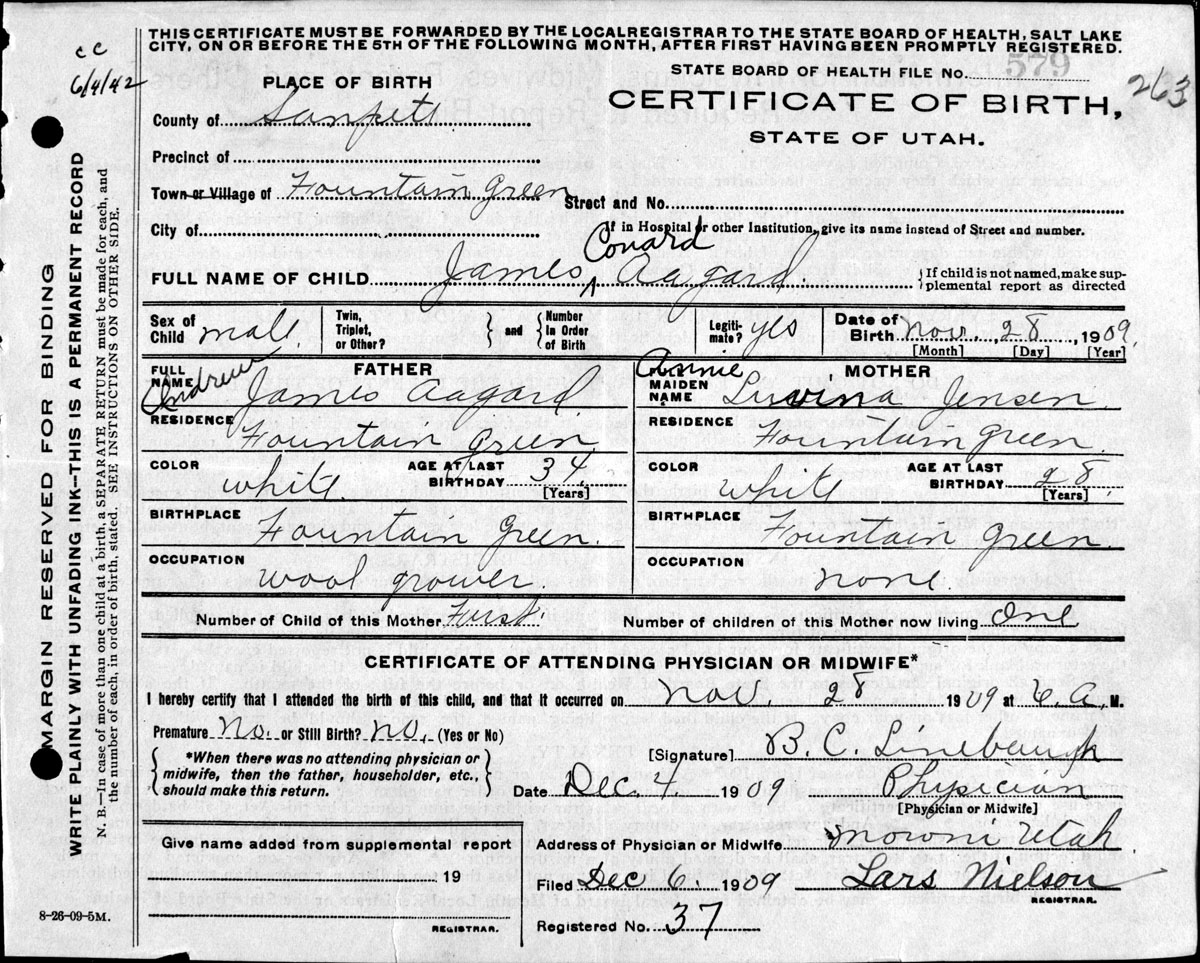 THIS CERTIFICATE MUST BE FORWARDED BY THE LOCALREGISTRAR TO THE STATE BOARD OF HEALTH, SALT LAKE
CITY, ON OR BEFORE THE 5TH OF THE FOLLOWING MONTH, AFTER FIRST HAVING BEEN PROMPTLY REGISTERED.
cc
6/4/42
STATE BOARD OF HEALTH FILE No. 579
263
PLACE OF BIRTH
CERTIFICATE OF BIRTH,
STATE OF UTAH.
County of Sanpete
Precinct of
Town or Village of Fountain Green
Street and No.
City of
If in Hospital or other Institution, give its name instead of Street and number.
Conard
FULL NAME OF CHILD James Aagard.
If child is not named, make sup-
plemental report as directed
Sex of Child male. Twin, Triplet, or Other? and Number In Order of Birth Legiti- mate? yes Date of Birth Nov. 28, 1909.
[Month] [Day] [Year]
FATHER
MOTHER
FULL NAME Andrew James Aagard.
MAIDEN NAME Luvina Jensen.
RESIDENCE Fountain Green
RESIDENCE Fountain Green.
COLOR white. AGE AT LAST BIRTHDAY 34. [Years]
COLOR white AGE AT LAST BIRTHDAY 28. [Years]
BIRTHPLACE Fountain Green.
BIRTHPLACE Fountain Green.
OCCUPATION wool grower.
OCCUPATION none.
Number of Child of this Mother First. Number of children of this Mother now living One
CERTIFICATE OF ATTENDING PHYSICIAN OR MIDWIFE*
I hereby certify that I attended the birth of this child, and that it occurred on Nov. 28 1909 at 6. A. M.
Premature No. or Still Birth? no. (Yes or No)
[Signature] B. C. Linebaugh
*When there was no attending physician or
midwife, then the father, householder, etc.,
should make this return.
Date Dec. 4. 1909 Physician
[Physician or Midwife]
Give name added from supplemental report
19
REGISTRAR.
Address of Physician or Midwife Moroni Utah.
Filed Dec 6. 1909 Lars Nielson
REGISTRAR.
Registered No. 37
8-26-09-5M.
MARGIN RESERVED FOR BINDING
WRITE PLAINLY WITH UNFADING INK—THIS IS A PERMANENT RECORD
N. B.—In case of more than one child at a birth, a SEPARATE RETURN must be made for each, and
the number of each, in order of birth, stated. SEE INSTRUCTIONS ON OTHER SIDE.